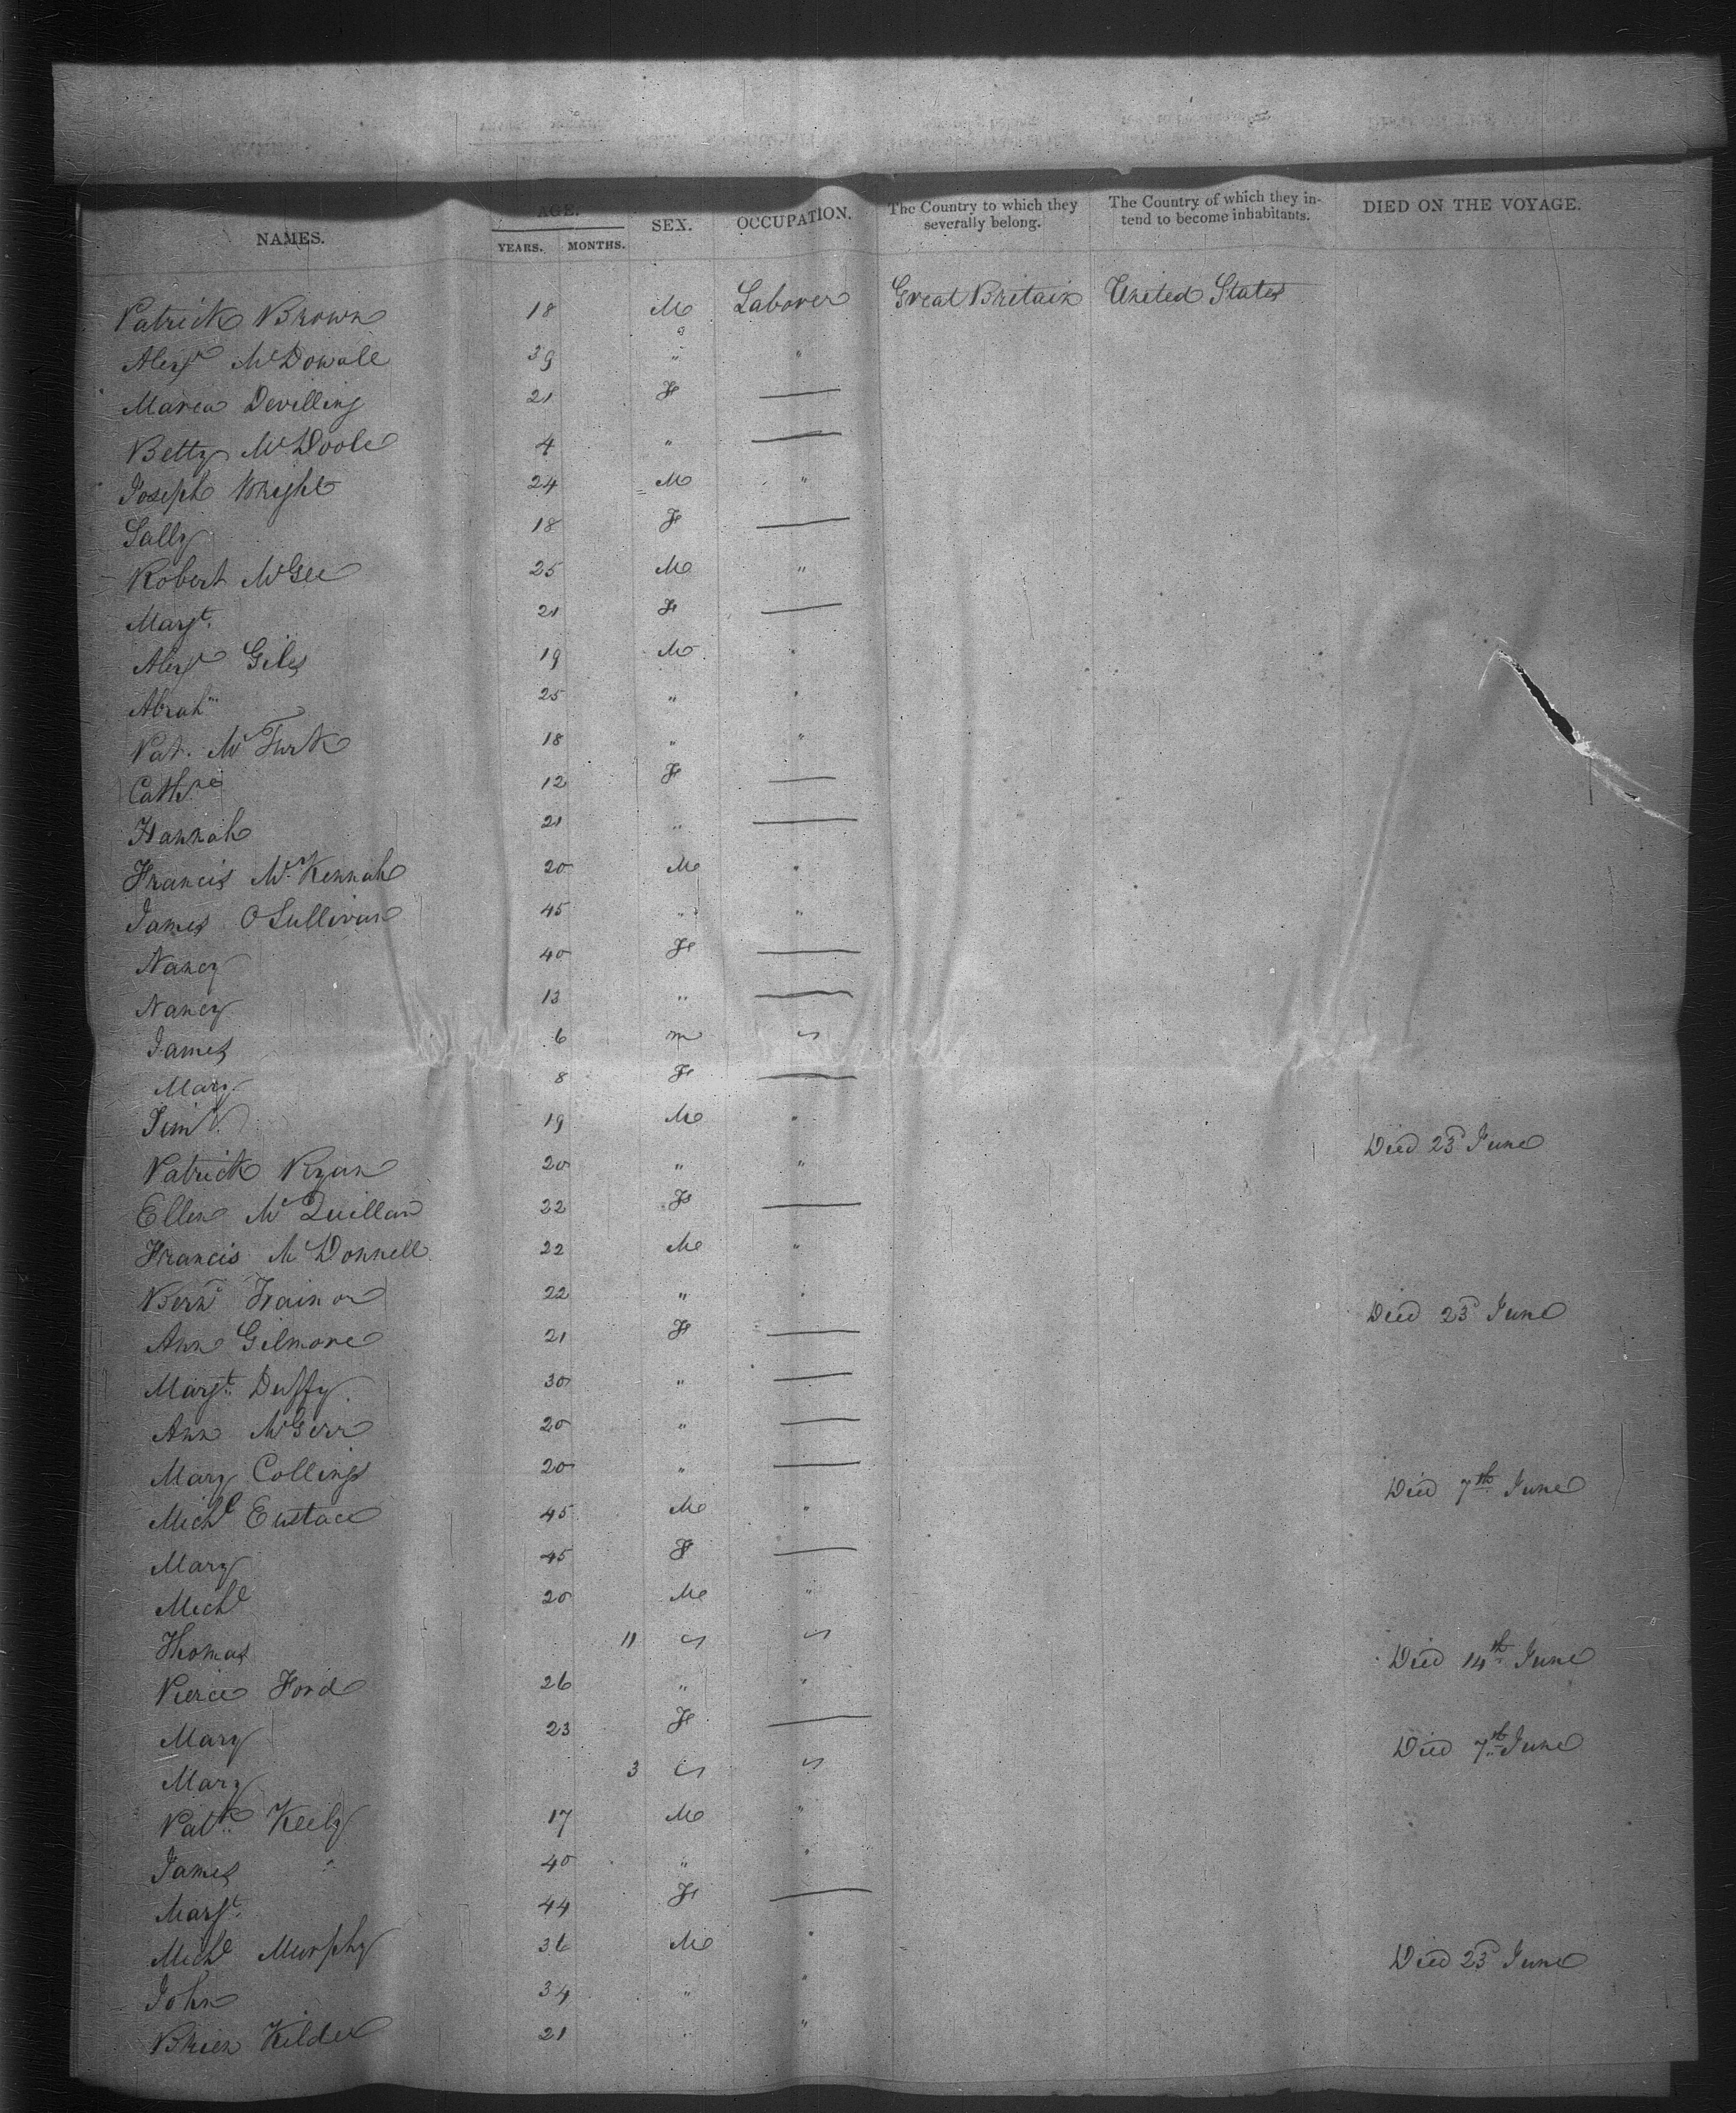 NAMES. AGE. YEARS. MONTHS. SEX. OCCUPATION. The Country to which they severally belong. The Country of which they intend to become inhabitants. DIED ON THE VOYAGE.
Patrick Brown 18 M Laborer Great Britain United States
Alexr McDowale 39 " "
Maria Devilling 21 F —
Betty McDoole 4 " —
Joseph Wright 24 M "
Sally 18 F —
Robert McGee 25 M "
Margt. 21 F —
Alexr Giles 19 M "
Abrahm 25 " "
Pat. McTurk 18 " "
Cathne 12 F —
Hannah 21 " —
Francis McKennah 20 M "
James O Sullivan 45 " "
Nancy 40 F —
Nancy 13 " —
James 6 m "
Mary 8 F —
Jim 19 M "
Patrick Ryan 20 " " Died 23d June
Ellen McQuillan 22 F —
Francis McDonnell 22 M "
Bernd Trainor 22 " "
Ann Gilmore 21 F — Died 23d June
Margt. Duffy 30 " —
Ann McGerr 20 " —
Mary Collings 20 " —
Michl Eustace 45 M " Died 7th June
Mary 45 F —
Michl 20 M "
Thomas 11 " "
Pierce Ford 26 " " Died 14th June
Mary 23 F —
Mary 3 " " Died 7th June
Patk Keely 17 M "
James 40 " "
Margt. 44 F —
Michl Murphy 36 M "
John 34 " " Died 23d June
Brien Kilder 21 " "